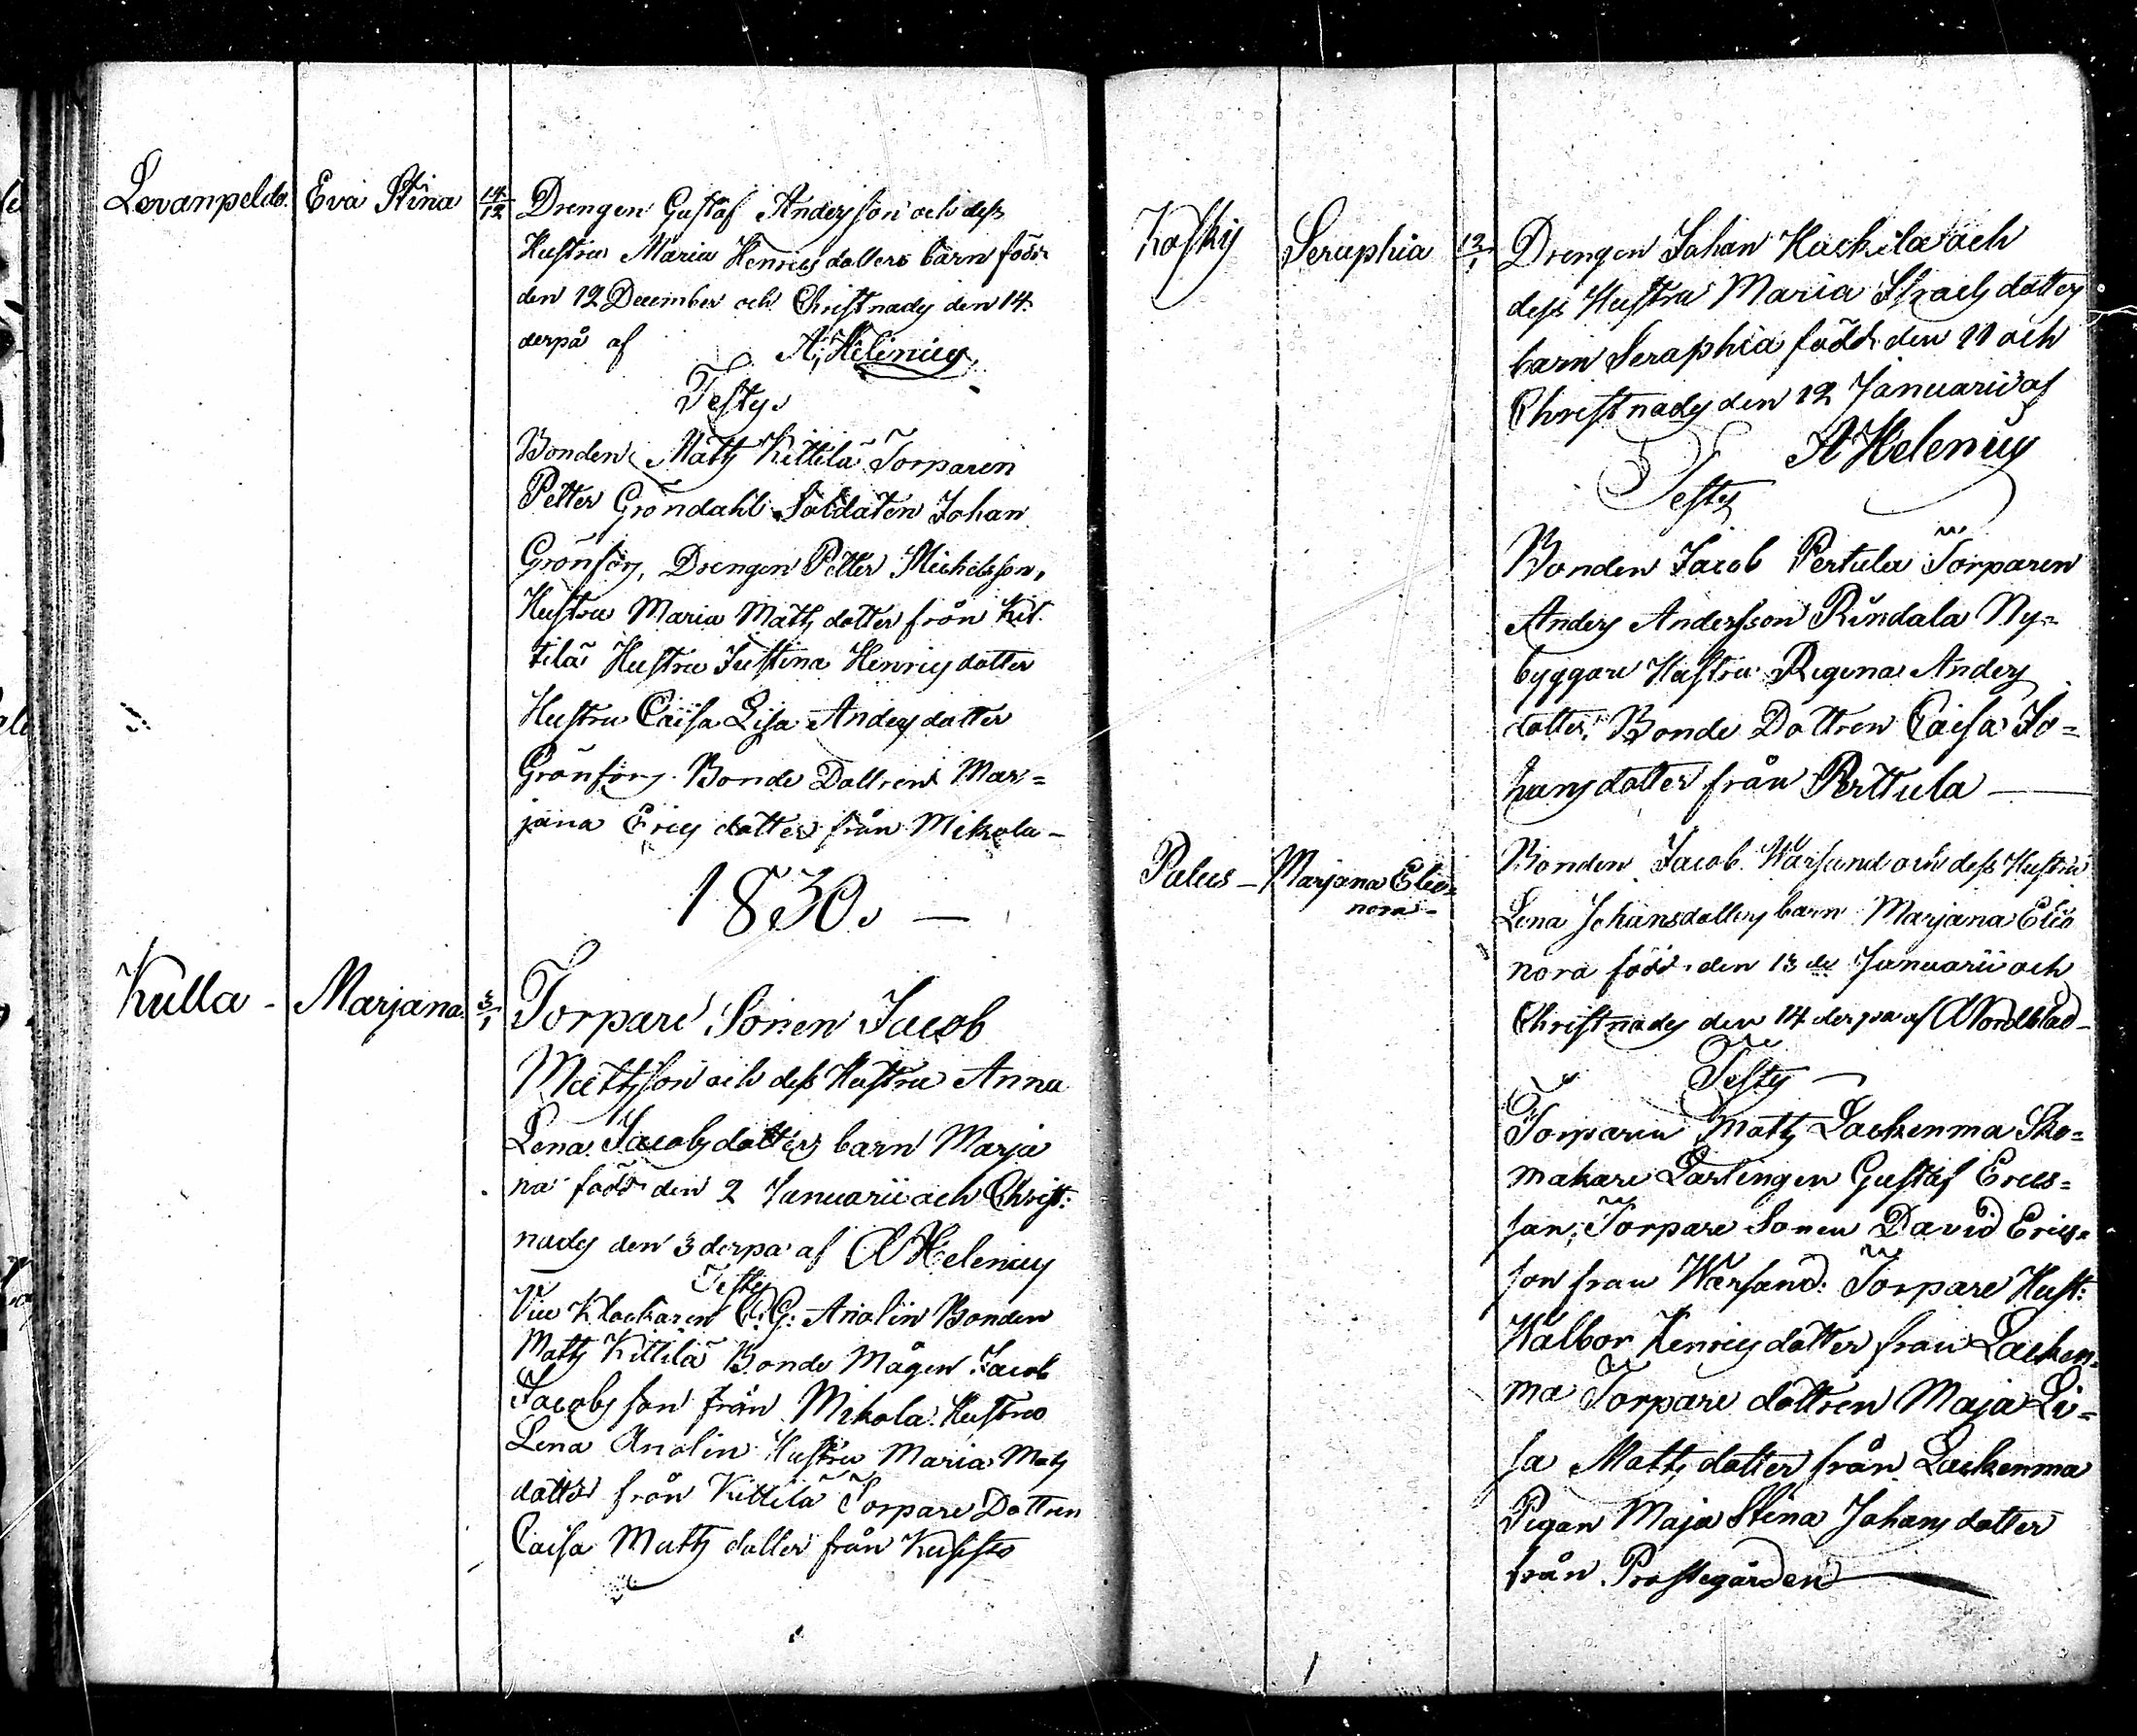 Levanpeldo. Eva Stina 14/12 Drengen Gustaf Andersson och dess
Hustru Maria Henricsdotters barn född
den 12 December och Christnades den 14
derpå af A: Helenius
Testes
Bonden Matts Kittilä Torparen
Petter Gröndahl Soldaten Johan
Grönfors, Drengen Petter Michelsson,
Hustru Maria Mattsdotter från Kit-
tilä Hustru Justina Henricsdotter
Hustru Caisa Lisa Andersdotter
Grönfors. Bonde Dottren Mar=
jana Ericsdotter från Mikola –
1830. –
Kulla – Marjana. 3/1 Torpare Sonen Jacob
Mattsson och dess Hustru Anna
Lena Jacobsdotters barn Marja
na född den 2 Januarii och Christ:
nades den 3 derpå af A Helenius
Testes
Vice Klockaren C: G: Anolin Bonden
Matts Kittilä Bonde Mågen Jacob
Jacobsson från Mikola. Hustru
Lena Anolin Hustru Maria Mats
dotter från Kittilä Torpare Dottren
Caisa Mattsdotter från Kusisto
Kosky Seraphia 12/1 Drengen Johan Kackila och
dess Hustru Maria Isracsdotters
barn Seraphia född den 11 och
Christnades den 12 Januarii af
A Helenius
Testes
Bonden Jacob Pertula Torparen
Anders Andersson Rindala Ny=
byggare Hustru Regina Anders
dotter, Bonde Dottren Caisa Jo=
hansdotter från Perttula –
Palus – Marjana Eleo= Bonden Jacob Warsand och dess Hustru
nora – Lena Johansdotters barn Marjana Eleo
nora född den 13 de Januarii och
Christnades den 14 derpå af A Nordblad –
Testes –
Torparen Matts Lackenma Sko=
makare Lärlingen Gustaf Erics=
son, Torpare Sonen David Erics=
son från Warsand: Torpare Hust:
Walbor Henricsdotter från Lacken=
ma Torpare dottren Maja Li=
sa Mattsdotter från Lackenma
Pigan Maja Stina Johansdotter
från Prostegården